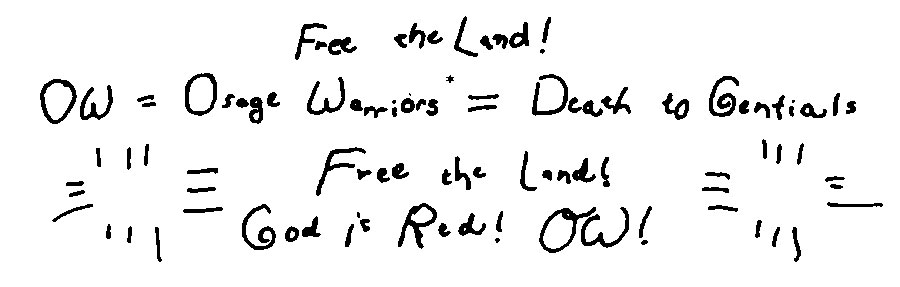 Free the Land!
OW = Osage Warriors* = Death to Gentials
Free the Land!
God is Red! OW!